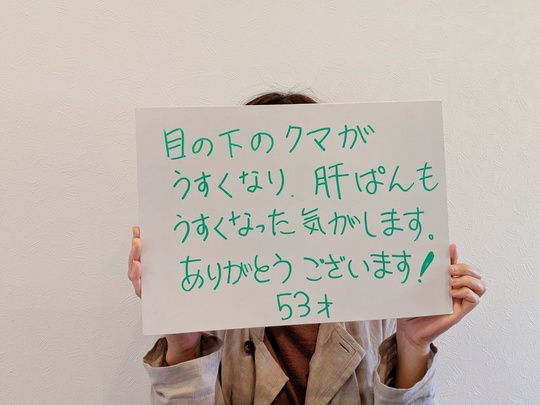 目の下のクマが
うすくなり、肝ぱんも
うすくなった気がします。
ありがとうございます!
53才